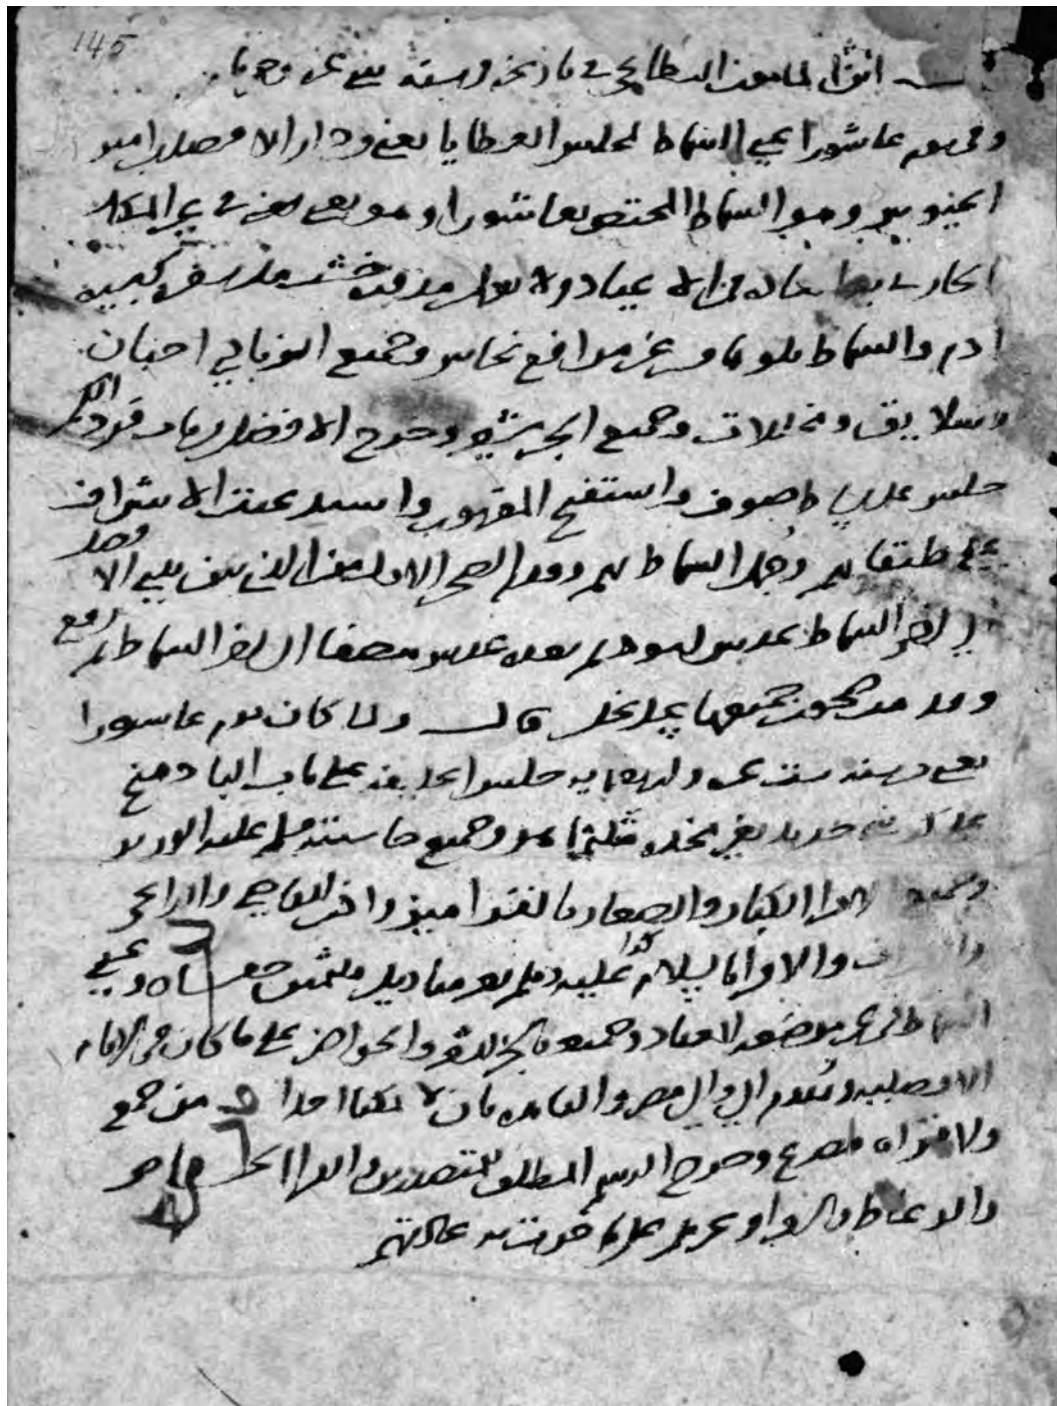 145
ابن المامون البطائحي في تاريخه وسنة
وفي يوم عاشورا عبي السماط بمجلس العطايا يعني في دار الافضل ابن امير
الجيوش وهو السماط المختص بعاشورا وهو يعبى في غير المكان
الجاري به العادة في الاعياد ولا يعمل مدورة خشب بل سفرة كبيرة
ادم والسماط يعلوها من غير مرافع نحاس وجميع الزبادي اجبان
وسلايق ومخللات وجميع الخبز شعير وخرج الافضل من باب فرد الكم
جلس على بساط صوف واستفتح المقريون واستدعيت الاشراف
على طبقاتهم وحمل السماط لهم وفي الصحن الاول من الذي بين يدي الافضل
الى اخر السماط عدس اسود ثم بعده عدس مصفا الى اخر السماط ثم رفع
وقدمت صحون جميعها عسل نحل قال ولما كان يوم عاشورا
يعني من سنة ست عشر وخمسمايه جلس الخليفة على باب الباذهنج
على كرسي جريد بغير مخدة متلثما هو وجميع حاشيته فسلم عليه الوزير
وجميع الامرا الكبار والصغار بالقرا ميز واذن للقاضي والداعي
والاشراف والامرا بالسلام عليه وهم بغير مناديل ملثمون حفاة وعبي
السماط في غير موضعه المعتاد وجميعه خبز الشعير والحواضر على ما كان في الايام
الافضلية وتقدم الى والي مصر والقاهرة بان لا يمكنا احدا من جمع
ولا قراة مصرع وخرج الرسم المطلق للمتصدرين والقرا الخاص
والوعاظ والشعرا وغيرهم على ما جرت به عادتهم